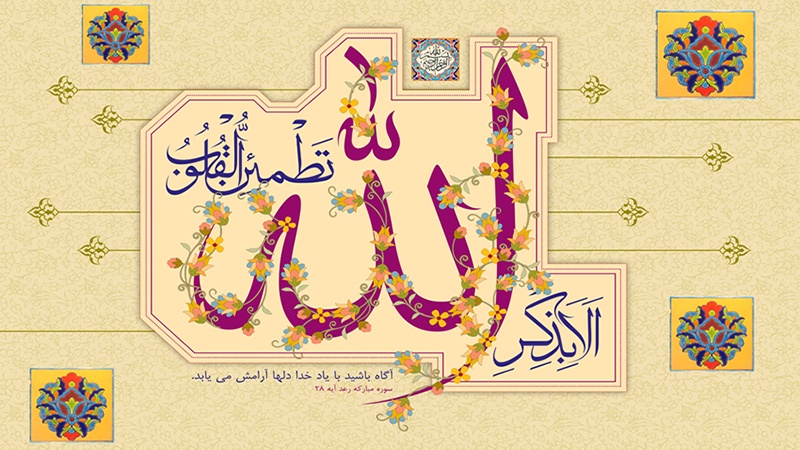 اَلَا بِذِکرِ
الله
تَطْمَئِنُّ القُلُوبُ
آگاه باشید با یاد خدا دلها آرامش می یابد.
سوره مبارکه رعد آیه ۲۸